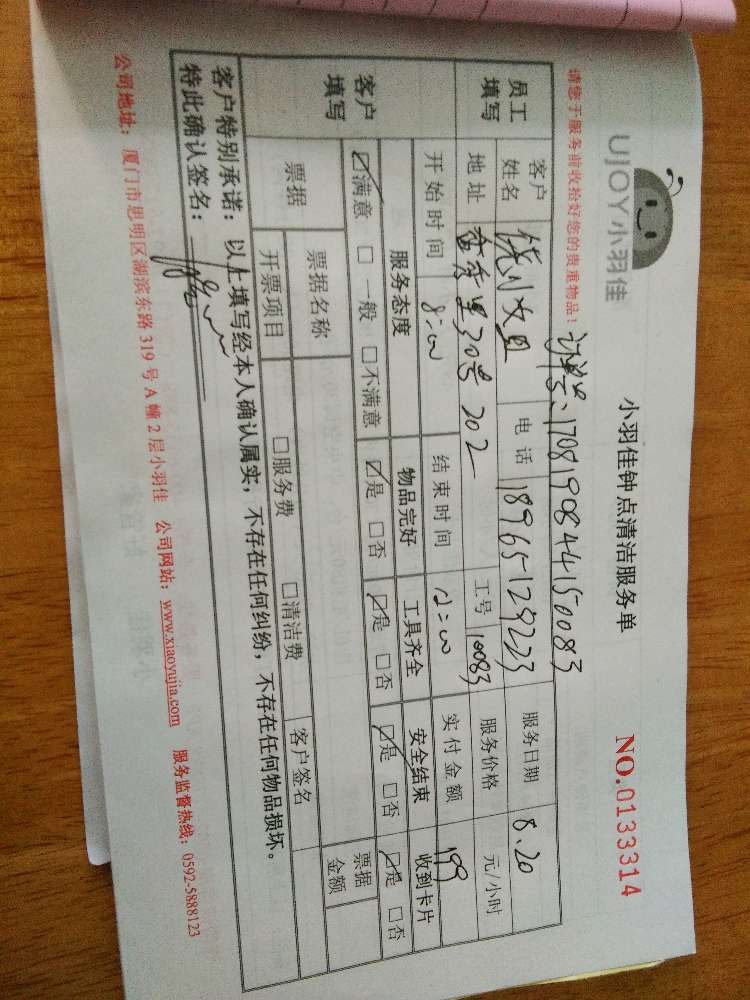 UJOY小羽佳
小羽佳钟点清洁服务单
NO.0133314
请您于服务前收拾好您的贵重物品！
订单号：1708190844150083
员工填写 客户姓名 电话 18965129223 服务日期 8.20
地址 30号202 工号 10083 服务价格 元/小时
客户填写 开始时间 8:00 结束时间 12:00 实付金额 199
服务态度 物品完好 工具齐全 安全结束 收到卡片
☑满意 □一般 □不满意 ☑是 □否 ☑是 □否 ☑是 □否 ☑是 □否
票据 票据名称 客户签名 票据金额
开票项目 □服务费 □清洁费
客户特别承诺：以上填写经本人确认属实，不存在任何纠纷，不存在任何物品损坏。
特此确认签名：
公司地址：厦门市思明区湖滨东路319号A幢2层小羽佳 公司网站：www.xiaoyujia.com 服务监督热线：0592-5888123